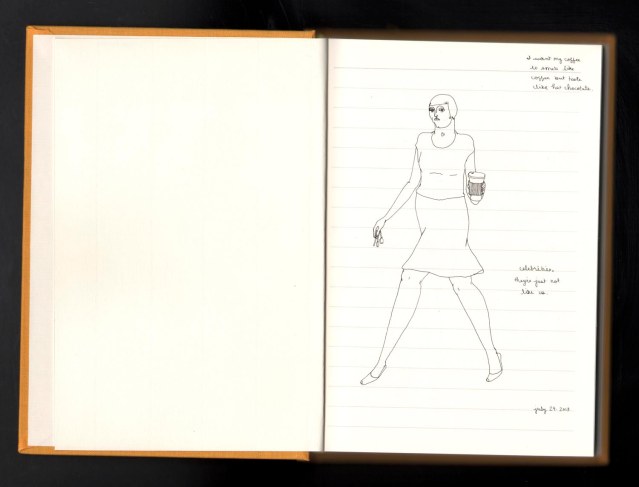 I want my coffee
to smell like
coffee but taste
like hot chocolate.
celebrities.
they're just not
like us.
july 29. 2013